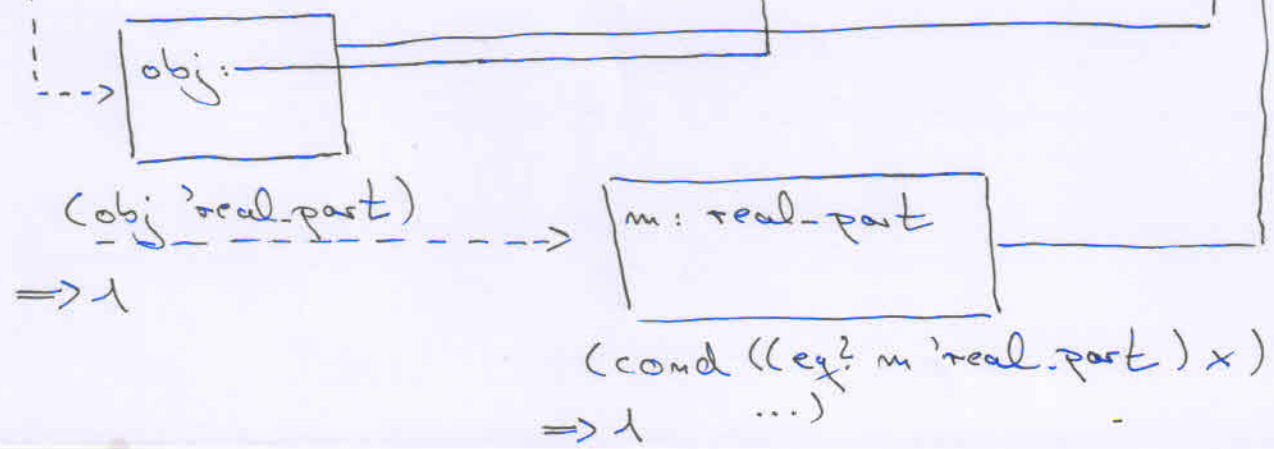 obj:
(obj 'real-part)
m: real-part
=> 1
(cond ((eq? m 'real-part) x)
...)
=> 1